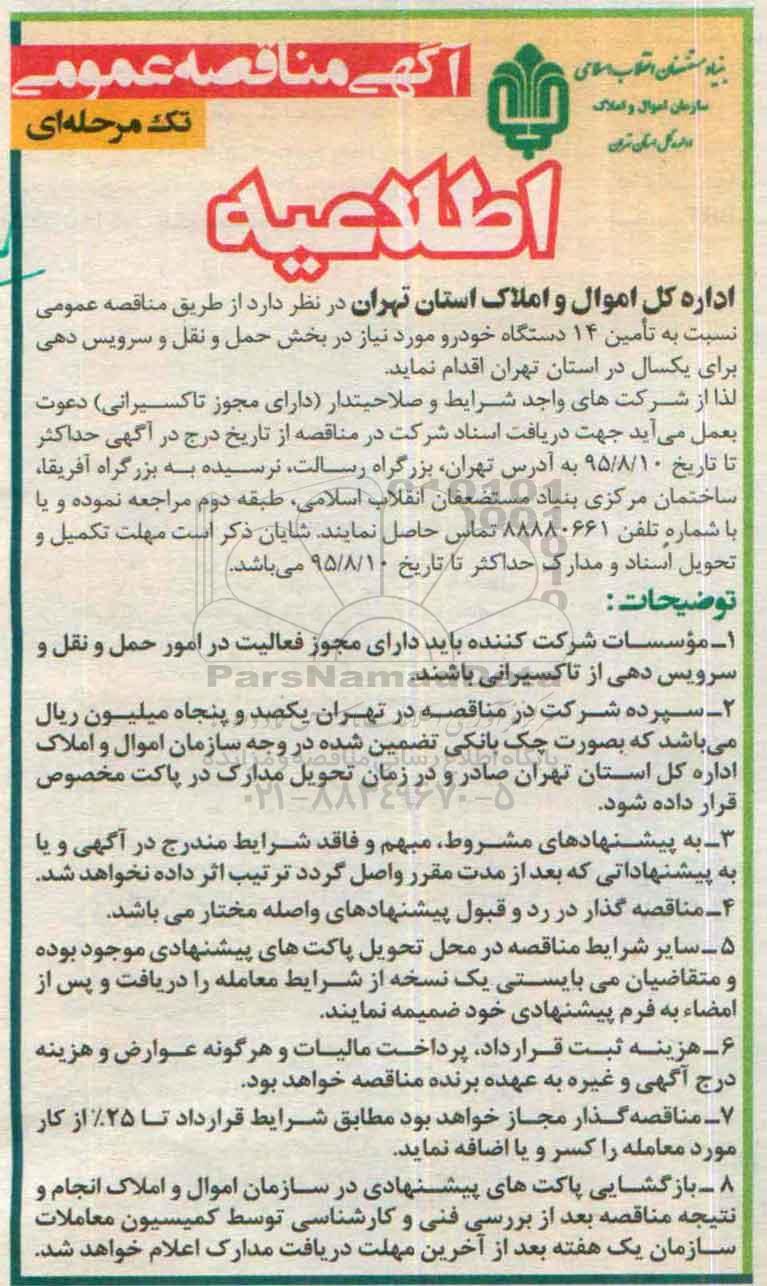 بنیاد مستضعفان انقلاب اسلامی
سازمان اموال و املاک
اداره کل استان تهران
آگهی مناقصه عمومی
تک مرحله‌ای
اطلاعیه
اداره کل اموال و املاک استان تهران در نظر دارد از طریق مناقصه عمومی
نسبت به تأمین ۱۴ دستگاه خودرو مورد نیاز در بخش حمل و نقل و سرویس دهی
برای یکسال در استان تهران اقدام نماید.
لذا از شرکت های واجد شرایط و صلاحیتدار (دارای مجوز تاکسیرانی) دعوت
بعمل می‌آید جهت دریافت اسناد شرکت در مناقصه از تاریخ درج در آگهی حداکثر
تا تاریخ ۹۵/۸/۱۰ به آدرس تهران، بزرگراه رسالت، نرسیده به بزرگراه آفریقا،
ساختمان مرکزی بنیاد مستضعفان انقلاب اسلامی، طبقه دوم مراجعه نموده و یا
با شماره تلفن ۸۸۸۸۰۶۶۱ تماس حاصل نمایند. شایان ذکر است مهلت تکمیل و
تحویل اسناد و مدارک حداکثر تا تاریخ ۹۵/۸/۱۰ می‌باشد.
توضیحات:
۱ـ مؤسسات شرکت کننده باید دارای مجوز فعالیت در امور حمل و نقل و
سرویس دهی از تاکسیرانی باشند.
ParsNamadData
۲ـ سپرده شرکت در مناقصه در تهران یکصد و پنجاه میلیون ریال
می‌باشد که بصورت چک بانکی تضمین شده در وجه سازمان اموال و املاک
پایگاه اطلاع رسانی مناقصه و مزایده
اداره کل استان تهران صادر و در زمان تحویل مدارک در پاکت مخصوص
قرار داده شود.
۰۲۱-۸۸۳۴۹۶۷۰-۵
۳ـ به پیشنهادهای مشروط، مبهم و فاقد شرایط مندرج در آگهی و یا
به پیشنهاداتی که بعد از مدت مقرر واصل گردد ترتیب اثر داده نخواهد شد.
۴ـ مناقصه گذار در رد و قبول پیشنهادهای واصله مختار می باشد.
۵ ـ سایر شرایط مناقصه در محل تحویل پاکت های پیشنهادی موجود بوده
و متقاضیان می بایستی یک نسخه از شرایط معامله را دریافت و پس از
امضاء به فرم پیشنهادی خود ضمیمه نمایند.
۶ ـ هزینه ثبت قرارداد، پرداخت مالیات و هرگونه عوارض و هزینه
درج آگهی و غیره به عهده برنده مناقصه خواهد بود.
۷ـ مناقصه‌گذار مجاز خواهد بود مطابق شرایط قرارداد تا ۲۵٪ از کار
مورد معامله را کسر و یا اضافه نماید.
۸ ـ بازگشایی پاکت های پیشنهادی در سازمان اموال و املاک انجام و
نتیجه مناقصه بعد از بررسی فنی و کارشناسی توسط کمیسیون معاملات
سازمان یک هفته بعد از آخرین مهلت دریافت مدارک اعلام خواهد شد.